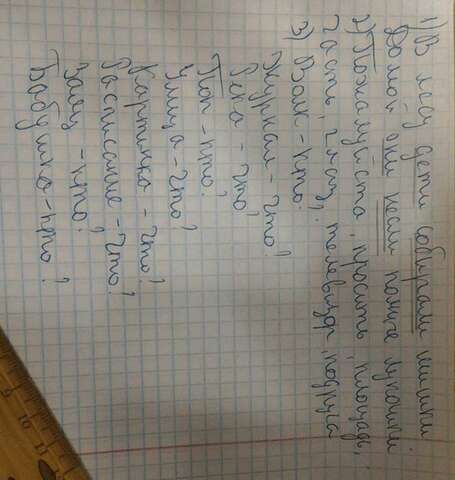 1) В лесу дети собирали шишки
Домой они несли полные лукошки
2) Пожалуйста, просить, площадь,
часть, глаз, телевизор, подруга
3) Волк - кто?
Журнал - что?
Река - что?
Поп - кто?
Улица - что?
Картинка - что?
Расписание - что?
Заяц - кто?
Бабушка - кто?